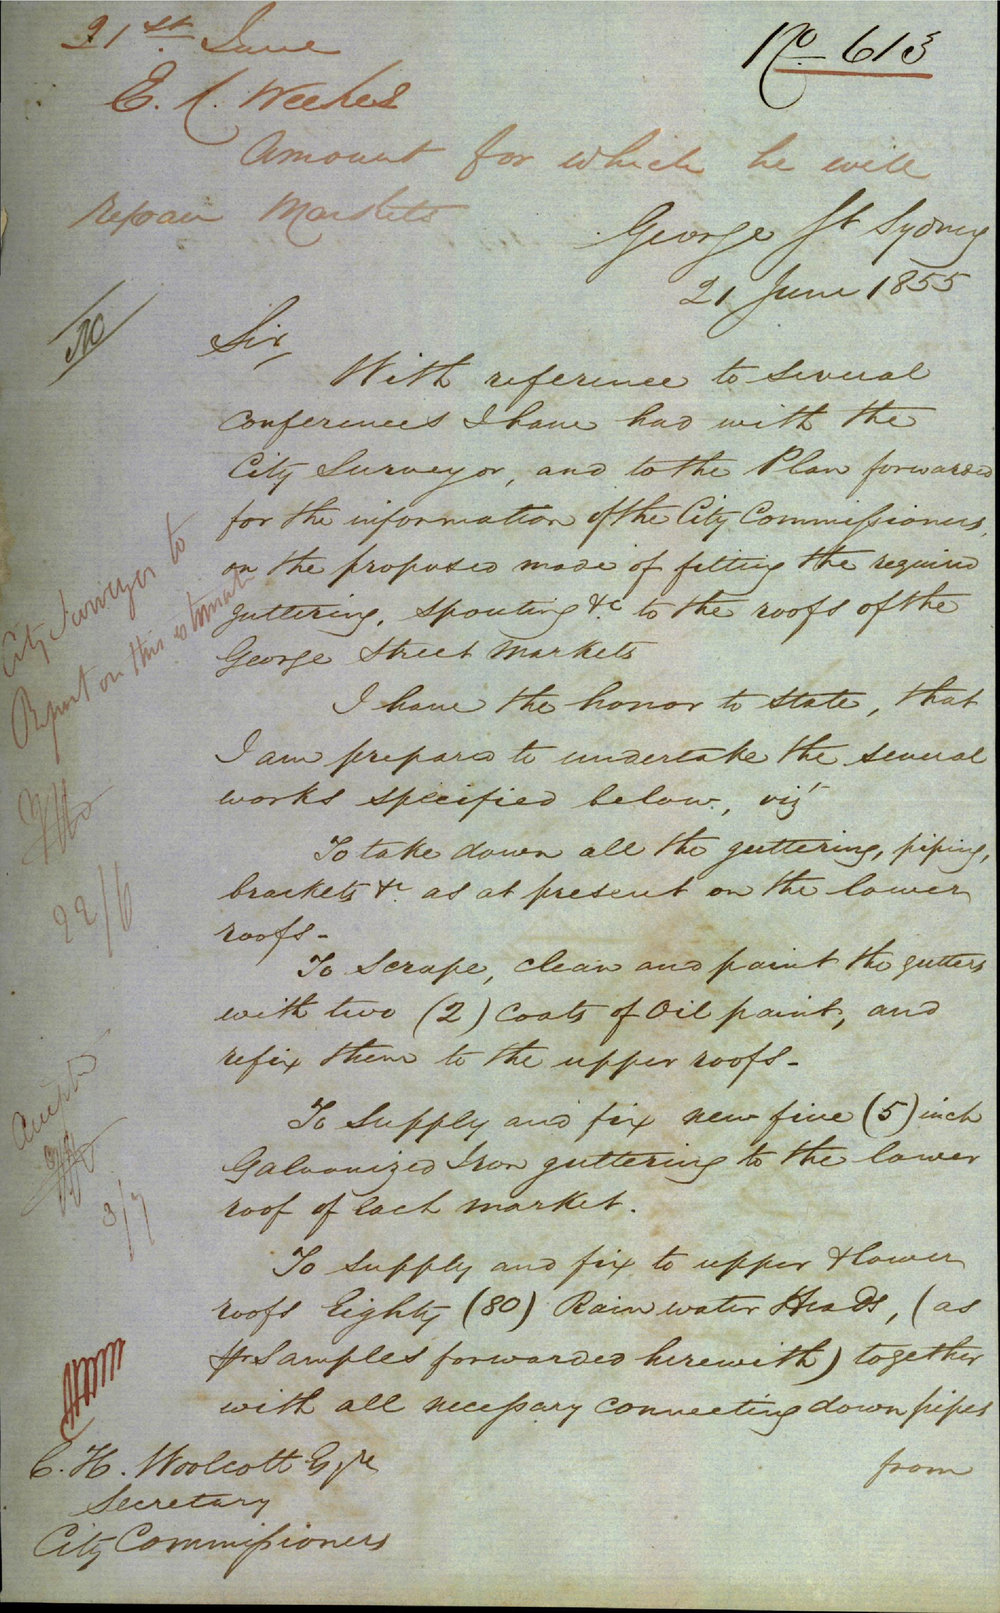 21st June
No 613
E. C. Weekes
Amount for which he will
Repair Markets
George St Sydney
21 June 1855
Sir,
With reference to several
conferences I have had with the
City Surveyor, and to the Plan forwarded
for the information of the City Commissioners,
on the proposed mode of fitting the required
guttering, spouting &c to the roofs of the
George Street Markets
I have the honor to state, that
I am prepared to undertake the several
works specified below, vizt
To take down all the guttering, piping,
brackets &c as at present on the lower
roofs-
To Scrape, clean and paint the gutters
with two (2) Coats of Oil paint, and
refix them to the upper roofs-
To Supply and fix new five (5) inch
Galvanized Iron guttering to the lower
roof of each market.
To Supply and fix to upper & lower
roofs Eighty (80) Rain water Heads, (as
pr Samples forwarded herewith) together
with all necessary connecting down pipes
from
City Surveyor to
Report on this estimate
22/6
3/7
E. H. Woolcott Esqre
Secretary
City Commissioners